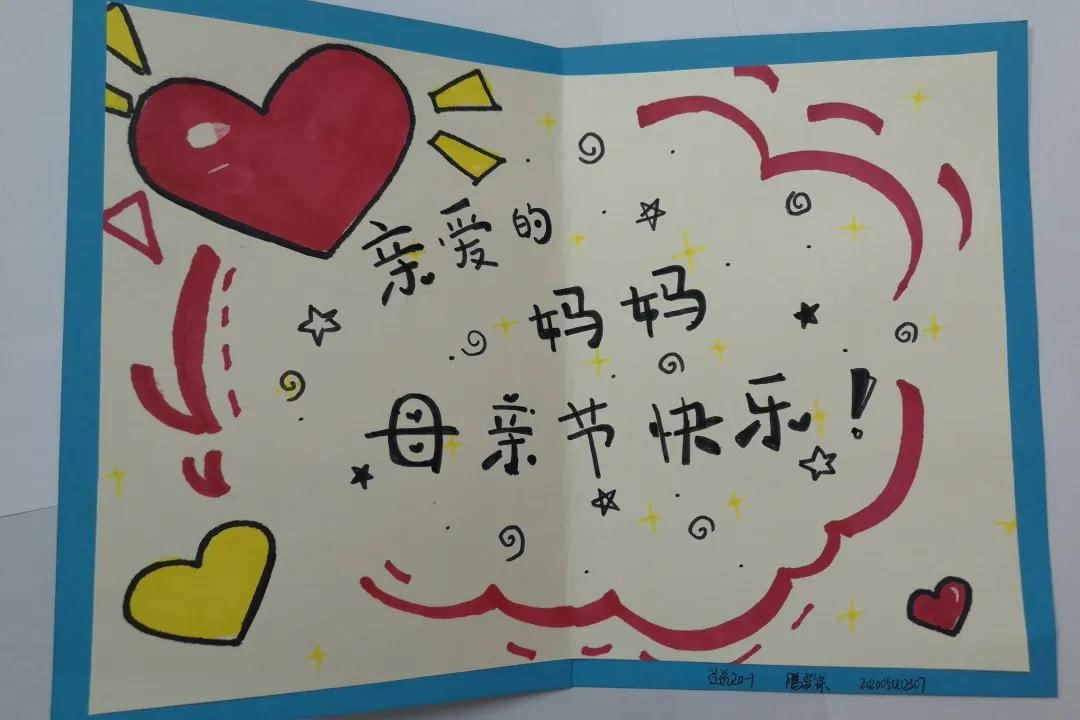 亲爱的
妈妈
母亲节快乐!
20-1 202005002307